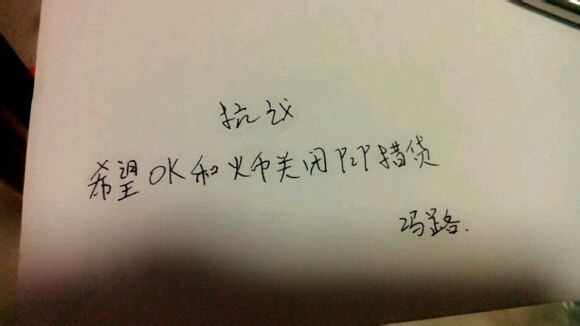 抗议
希望OK和火币关闭P2P借贷
冯路.